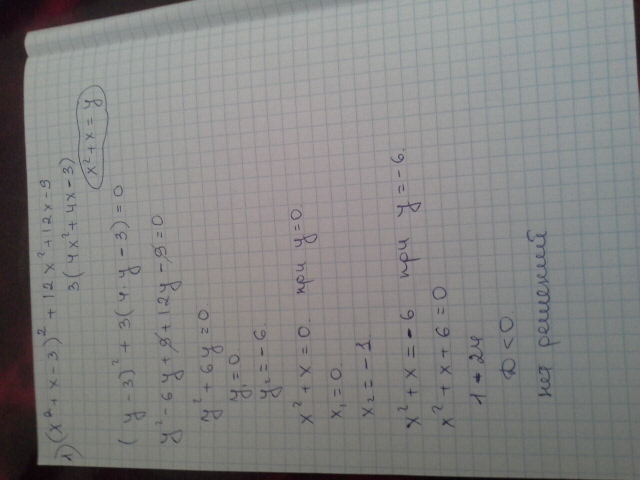 2) (x² + x - 3)² + 12x² + 12x - 9
3(4x² + 4x - 3)
x² + x = y
(y - 3)² + 3(4·y - 3) = 0
y² - 6y + 9 + 12y - 9 = 0
y² + 6y = 0
y₁ = 0
y₂ = -6
x² + x = 0. при y = 0
x₁ = 0.
x₂ = -1.
x² + x = -6 при y = -6.
x² + x + 6 = 0
1 - 24
D < 0.
нет решений